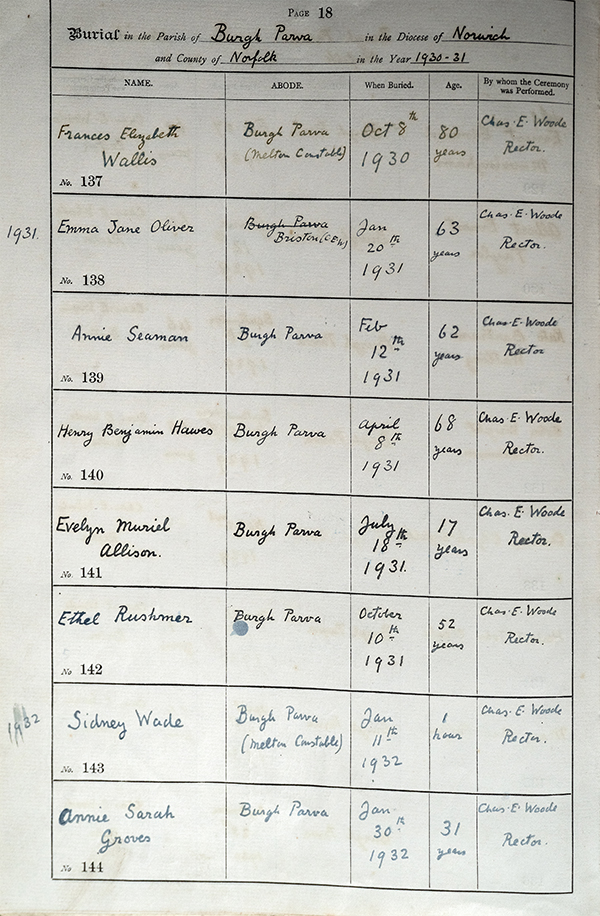 PAGE 18
Burial in the Parish of Burgh Parva in the Diocese of Norwich
and County of Norfolk in the Year 1930-31
NAME. ABODE. When Buried. Age. By whom the Ceremony was Performed.
Frances Elizabeth
Wallis
No. 137
Burgh Parva
(Melton Constable)
Oct 8th
1930
80
years
Chas. E. Woode
Rector.
1931.
Emma Jane Oliver
No. 138
Burgh Parva
Briston
Jan
20th
1931
63
years
Chas. E. Woode
Rector.
Annie Seaman
No. 139
Burgh Parva
Feb
12th
1931
62
years
Chas. E. Woode
Rector
Henry Benjamin Hawes
No. 140
Burgh Parva
April
8th
1931
68
years
Chas. E. Woode
Rector.
Evelyn Muriel
Allison.
No. 141
Burgh Parva
July
18th
1931.
17
years
Chas. E. Woode
Rector.
Ethel Rushmer
No 142
Burgh Parva
October
10th
1931
52
years
Chas. E. Woode
Rector.
1932
Sidney Wade
No. 143
Burgh Parva
(Melton Constable)
Jan
11th
1932
1
hour
Chas. E. Woode
Rector.
Annie Sarah
Groves
No 144
Burgh Parva
Jan
30th
1932
31
years
Chas. E. Woode
Rector.